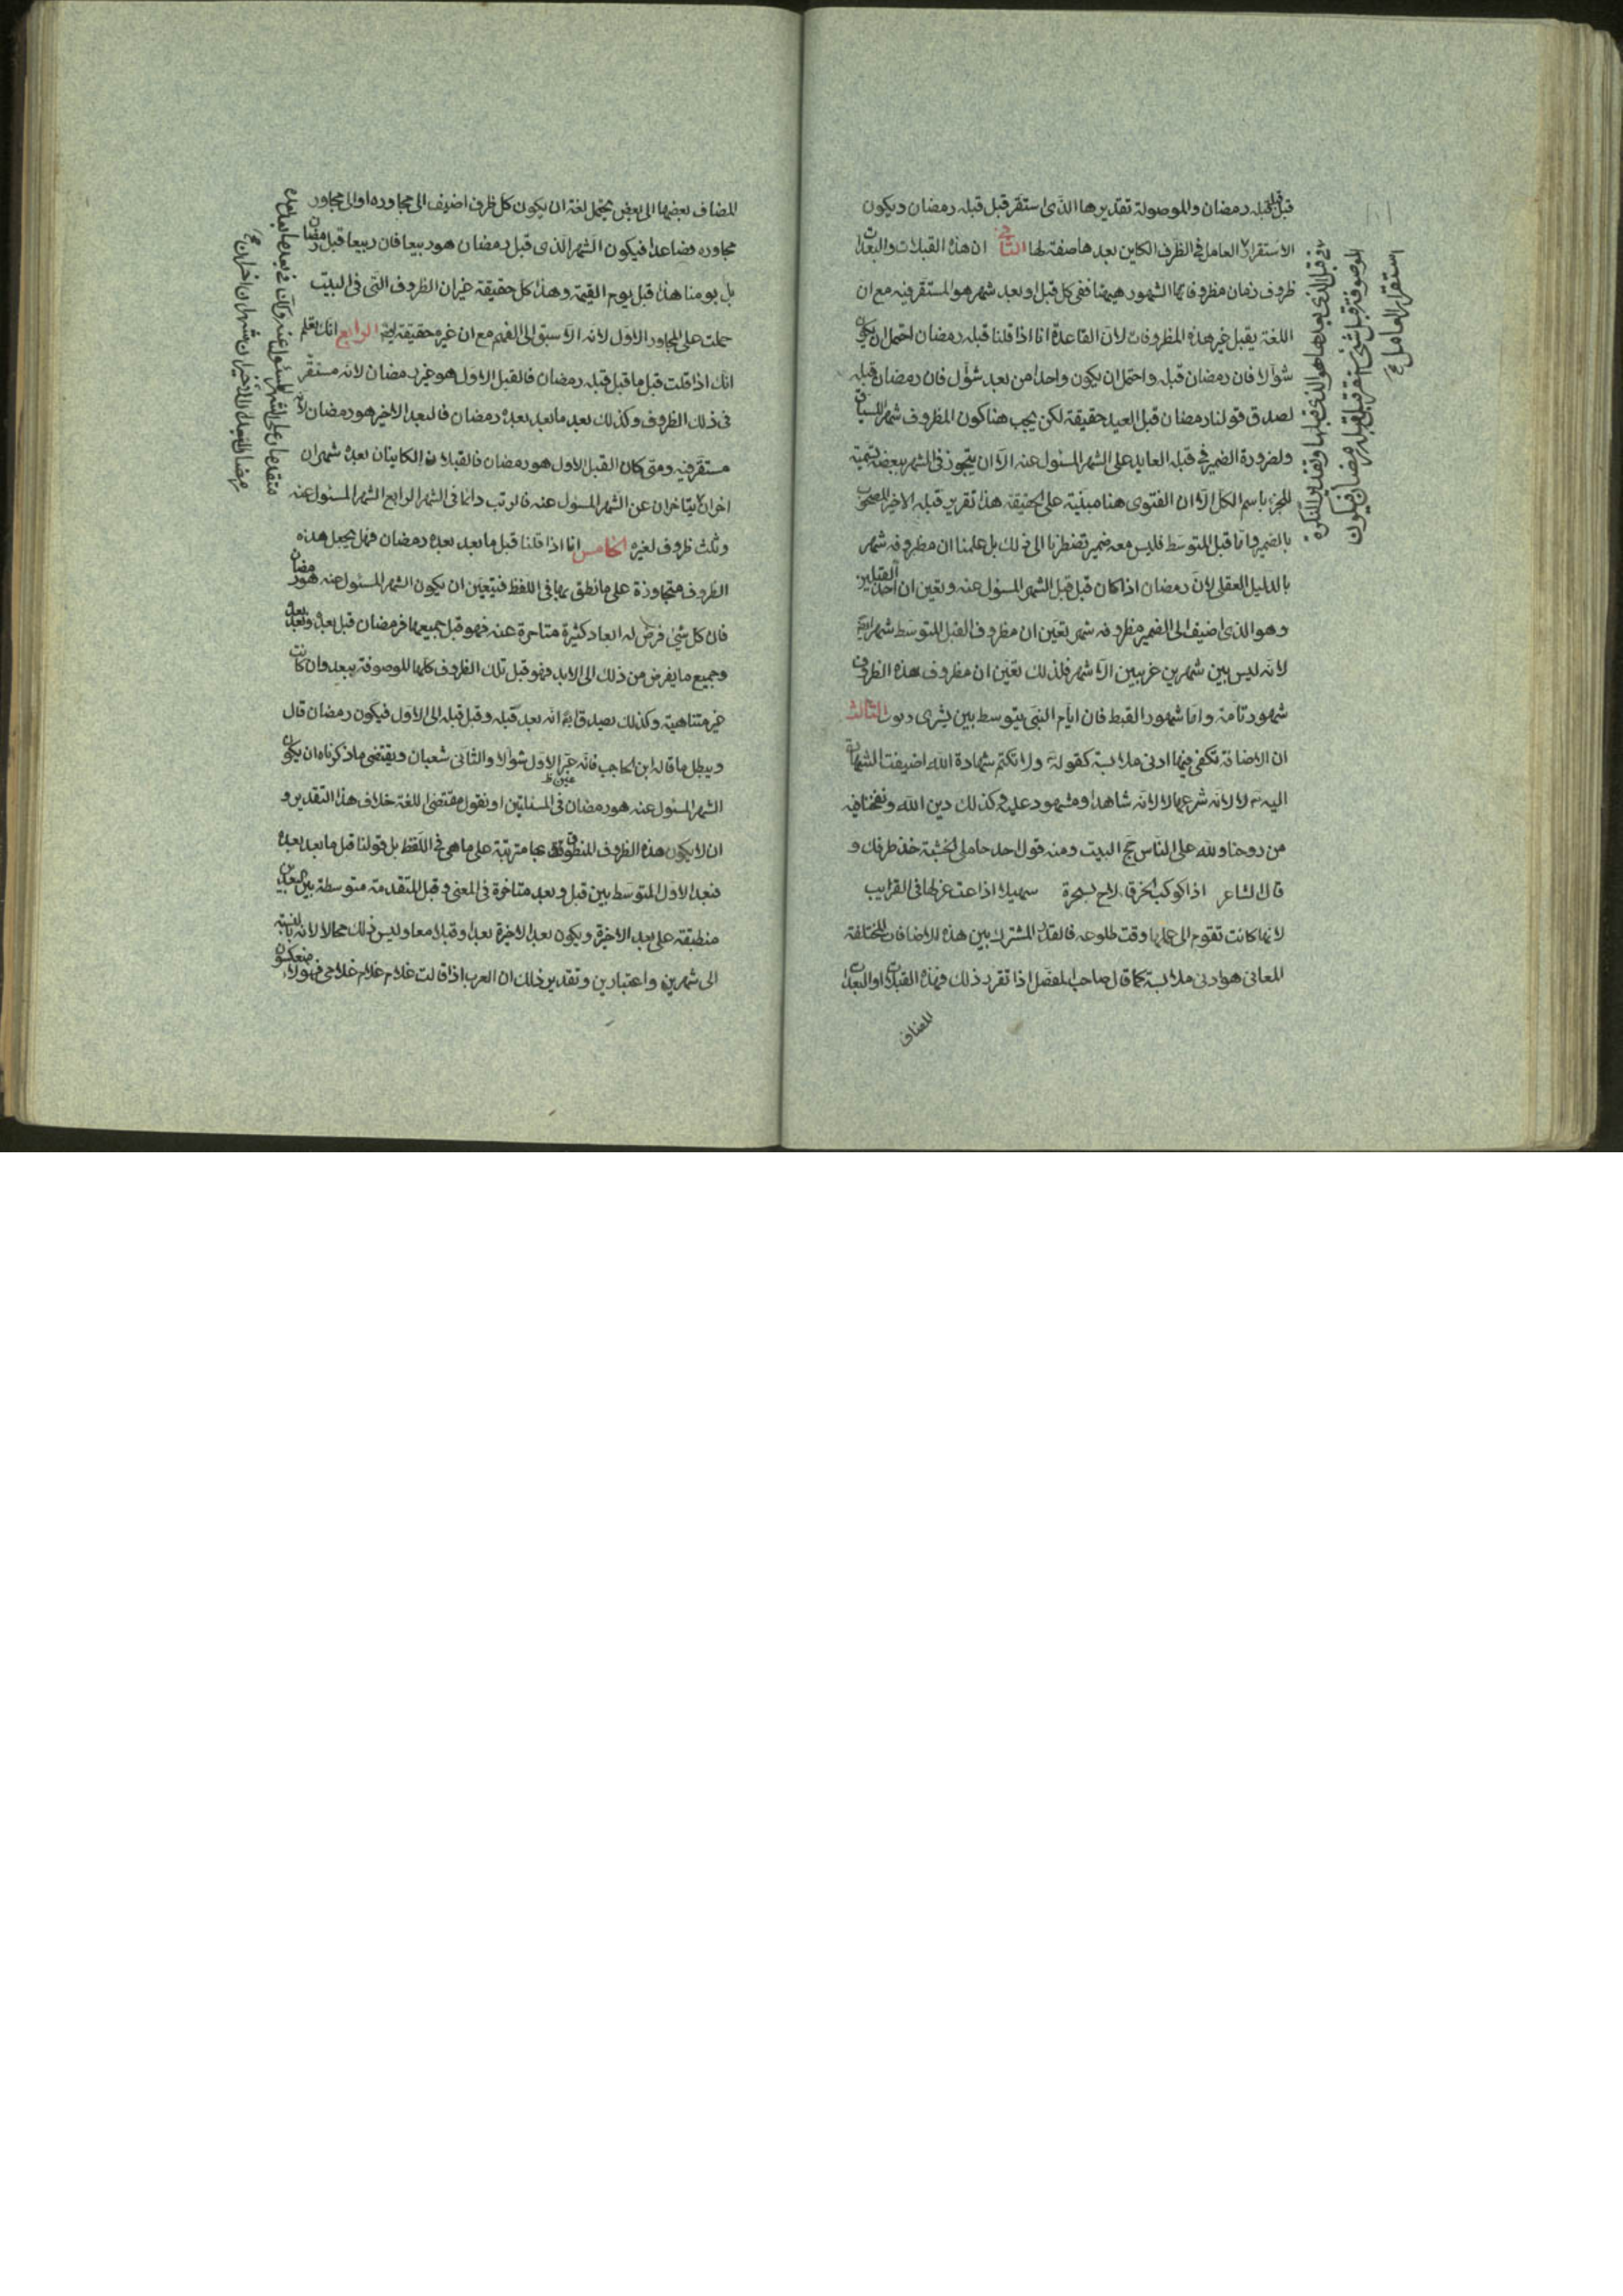 قبل قبله رمضان والموصولة تقديرها الذى استقر قبل قبله رمضان ويكون
الاستقرار العامل فى الظرف الكاين بعدها صفة لها الثانى ان هذه القبلات والبعدات
ظروف زمان مظروفاتها الشهور هيهنا ففى كل قبل او بعد شهر هو المستقر فيه مع ان
اللغة يقبل غير هذه المظروفات لان القاعدة انا اذا قلنا قبله رمضان احتمل ان يكون
شوالا فان رمضان قبله واحتمل ان يكون واحدا من بعد شوال فان رمضان قبله
لصدق قولنا رمضان قبل العيد حقيقة لكن يجب هنا كون المظروف شهرا للسياق
ولضرورة الضمير فى قبله العايد على الشهر المسئول عنه الا ان يتجوز فى الشهر ببعضه تسمية
للجزء باسم الكل الا ان الفتوى هنا مبنية على الحقيقة هذا تقرير قبله الاخير المصحوب
بالضمير واما قبل المتوسط فليس معه ضمير تضطرنا الى ذلك بل علمنا ان مظروفه شهر
بالدليل العقلى لان رمضان اذا كان قبل قبل الشهر المسئول عنه وتعين ان احد القبلين
وهو الذى اضيف الى الضمير مظروفه شهر تعين ان مظروف القبل المتوسط شهر ايضا
لانه ليس بين شهرين عربيين الا شهر فلذلك تعين ان مظروف هذه الظروف
شهور تامة واما شهور القبط فان ايام النسى يتوسط بين يشرى وتوت الثالث
ان الاضافة تكفى فيها ادنى ملابسة كقوله تع ولا نكتم شهادة الله اضيفت الشهادة
اليه تع لا لانه شرعها لا لانه شاهد او مشهود عليه وكذلك دين الله ونفخنا فيه
من روحنا ولله على الناس حج البيت ومنه قول احد حاملى الخشبة خذ طرفك و
قال الشاعر اذا كوكب الخرقاء لاح بسحرة سهيل اذاعت غزلها فى القرايب
لانها كانت تقوم الى عملها وقت طلوعه فالقدر المشترك بين هذه الاضافات المختلفة
المعانى هو ادنى ملابسة كما قال صاحب المفصل اذا تقرر ذلك فهذه القبلات او البعدات
المضاف
فى قبل الذى بعدها هو الذى قبلها وتقدير النكرة
الموصوفة قبل شئ استقر قبل قبله رمضان فيكون
استقرار العامل
المضاف بعضها الى بعض يحتمل لغة ان يكون كل ظرف اضيف الى مجاوره او الى مجاور
مجاوره فصاعدا فيكون الشهر الذى قبل رمضان هو ربيعا فان ربيعا قبل رمضان
بل يومنا هذا قبل يوم القيمة وهذا كل حقيقة غير ان الظروف التى فى البيت
حملت على المجاور الاول لانه الاسبق الى الفهم مع ان غيره حقيقة ايضا الرابع انك تعلم
انك اذا قلت قبل ما قبل قبله رمضان فالقبل الاول هو غير رمضان لانه مستقر
فى ذلك الظروف وكذلك بعد ما بعد بعده رمضان فالبعد الاخير هو رمضان لانه
مستقر فيه ومتى كان القبل الاول هو رمضان فالقبلان الكاينان بعده شهران
اخران يتاخران عن الشهر المسئول عنه فالرتب دائما فى الشهر الرابع الشهر المسئول عنه
وثلث ظروف لغيره الخامس انا اذا قلنا قبل ما بعد بعده رمضان فهل يجعل هذه
الظروف متجاوزة على ما نطق بها فى اللفظ فيتعين ان يكون الشهر المسئول عنه هو رمضان
فان كل شئ فرض له ابعاد كثيرة متاخرة عنه فهو قبل جميعها فرمضان قبل بعده وبعد بعده
وجميع ما يفرض من ذلك الى الابد فهو قبل تلك الظروف كلها الموصوفة ببعد وان كانت
غير متناهية وكذلك يصدق ايضا انه بعد قبله وقبل قبله الى الاول فيكون رمضان قال
ويبطل ما قاله ابن الحاجب فانه عين الاول شوالا والثانى شعبان ويقتضى ما ذكرناه ان يكون
عين ظ
الشهر المسئول عنه هو رمضان فى المسئلتين او نقول مقتضى اللغة خلاف هذا التقدير و
ان لا يكون هذه الظروف المنطوق بها مترتبة على ما هى فى اللفظ بل قولنا قبل ما بعد بعده
فبعد الاول المتوسط بين قبل وبعد متاخرة فى المعنى وقبل المتقدمة متوسطة بين البعدين
منطبقة على بعد الاخيرة ويكون بعد الاخيرة بعدا وقبلا معا وليس ذلك محالا لانه بالنسبة
الى شهرين واعتبارين وتقدير ذلك ان العرب اذا قالت غلام غلام غلامى فهؤلاء منعكسون
متقدمان على الشهر المسئول عنه وكذلك فى بعد ما بعد بعده
رمضان البعدان الاخيران شهران اخران